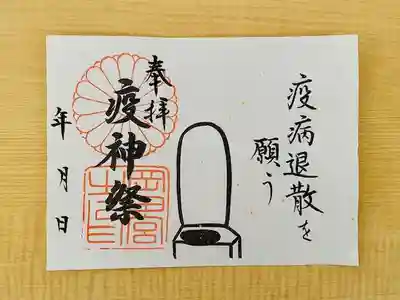 疫病退散を
願う
奉拝
疫神祭
年月日